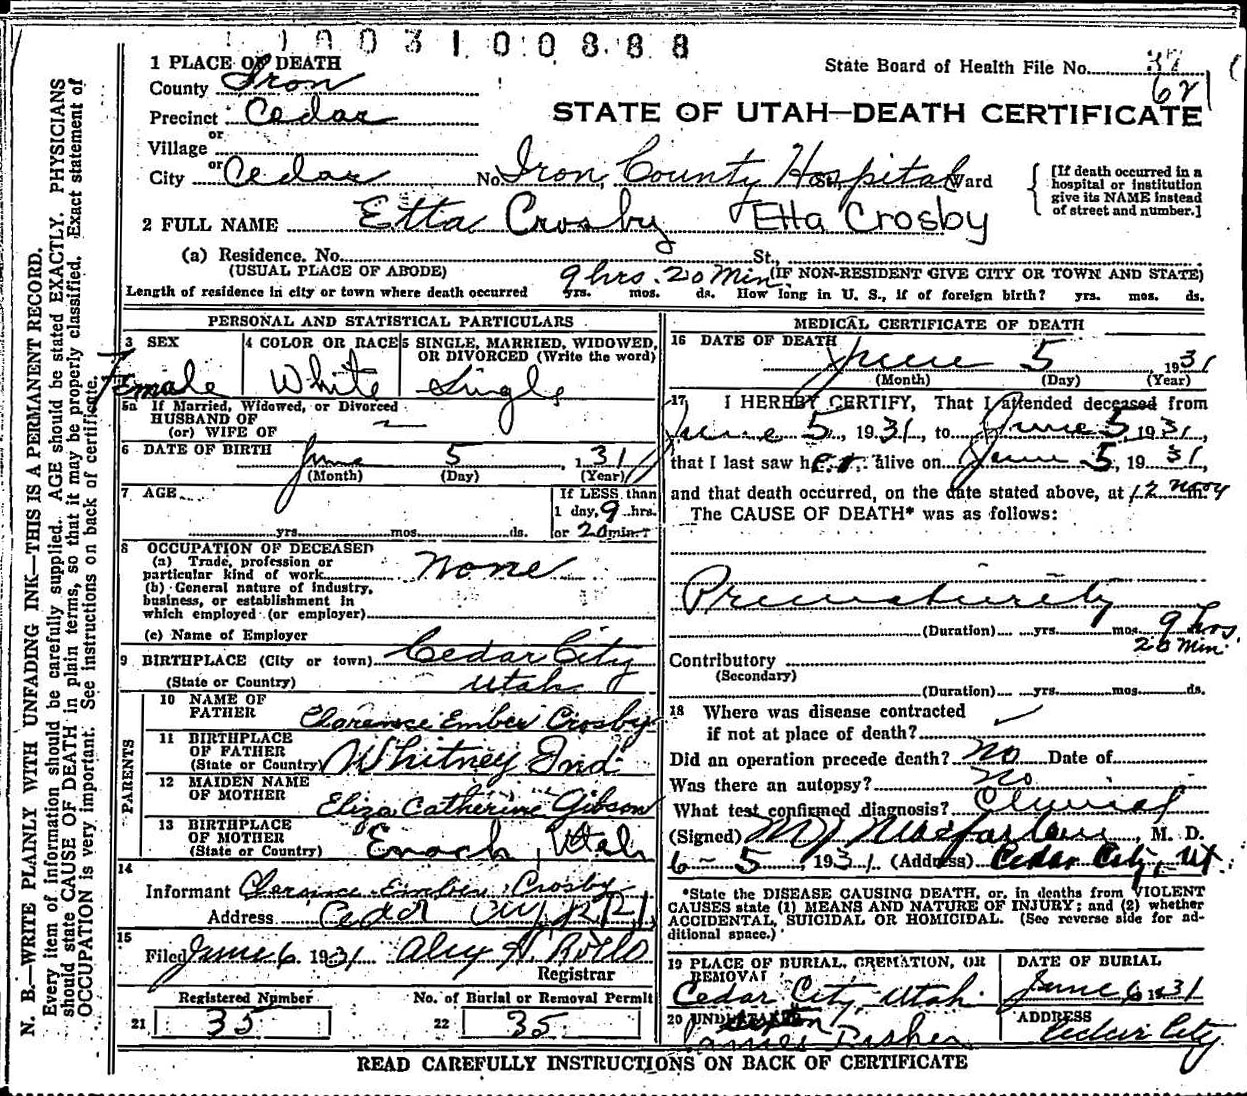 1 0 0 3 1 0 0 8 8 8
1 PLACE OF DEATH
State Board of Health File No. 37
County Iron
62
Precinct Cedar
STATE OF UTAH—DEATH CERTIFICATE
or
Village
or
City Cedar No. Iron County Hospital St. Ward
[If death occurred in a hospital or institution give its NAME instead of street and number.]
2 FULL NAME Etta Crosby Etta Crosby
(a) Residence. No. St.,
(USUAL PLACE OF ABODE) 9 hrs. 20 Min. (IF NON-RESIDENT GIVE CITY OR TOWN AND STATE)
Length of residence in city or town where death occurred yrs. mos. ds. How long in U. S., if of foreign birth? yrs. mos. ds.
PERSONAL AND STATISTICAL PARTICULARS
3 SEX
Female
4 COLOR OR RACE
White
5 SINGLE, MARRIED, WIDOWED, OR DIVORCED (Write the word)
Single
5a If Married, Widowed, or Divorced
HUSBAND OF
(or) WIFE OF
6 DATE OF BIRTH June 5, 1 31
(Month) (Day) (Year)
7 AGE
yrs. mos. ds.
If LESS than
1 day, 9 hrs.
or 20 min.?
8 OCCUPATION OF DECEASED
(a) Trade, profession or
particular kind of work None
(b) General nature of industry,
business, or establishment in
which employed (or employer)
(c) Name of Employer
9 BIRTHPLACE (City or town) Cedar City
(State or Country) Utah
PARENTS
10 NAME OF
FATHER Clarence Ember Crosby
11 BIRTHPLACE
OF FATHER
(State or Country) Whitney Ind
12 MAIDEN NAME
OF MOTHER Eliza Catherine Gibson
13 BIRTHPLACE
OF MOTHER
(State or Country) Enoch, Utah
14
Informant Clarence Ember Crosby
Address Cedar City
15
Filed June 6 1931
Registrar
Registered Number
21 35
No. of Burial or Removal Permit
22 35
MEDICAL CERTIFICATE OF DEATH
16 DATE OF DEATH
June 5, 1931
(Month) (Day) (Year)
17 I HEREBY CERTIFY, That I attended deceased from
June 5, 1931, to June 5, 1931,
that I last saw her alive on June 5, 19 31,
and that death occurred, on the date stated above, at 12 noon m.
The CAUSE OF DEATH* was as follows:
Prematurity
(Duration) yrs. mos. 9 hrs.
20 Min.
Contributory
(Secondary)
(Duration) yrs. mos. ds.
18 Where was disease contracted
if not at place of death?
Did an operation precede death? No Date of
Was there an autopsy? No
What test confirmed diagnosis? Clinical
(Signed) M J Macfarlane, M. D.
6-5, 1931. (Address) Cedar City, Ut.
*State the DISEASE CAUSING DEATH, or, in deaths from VIOLENT
CAUSES state (1) MEANS AND NATURE OF INJURY; and (2) whether
ACCIDENTAL, SUICIDAL OR HOMICIDAL. (See reverse side for ad-
ditional space.)
19 PLACE OF BURIAL, CREMATION, OR
REMOVAL
Cedar City, Utah.
DATE OF BURIAL
June 6 1931
20 UNDERTAKER
Sexton
ADDRESS
Cedar City
READ CAREFULLY INSTRUCTIONS ON BACK OF CERTIFICATE
N. B.—WRITE PLAINLY WITH UNFADING INK—THIS IS A PERMANENT RECORD.
Every item of information should be carefully supplied. AGE should be stated EXACTLY. PHYSICIANS
should state CAUSE OF DEATH in plain terms, so that it may be properly classified. Exact statement of
OCCUPATION is very important. See instructions on back of certificate.